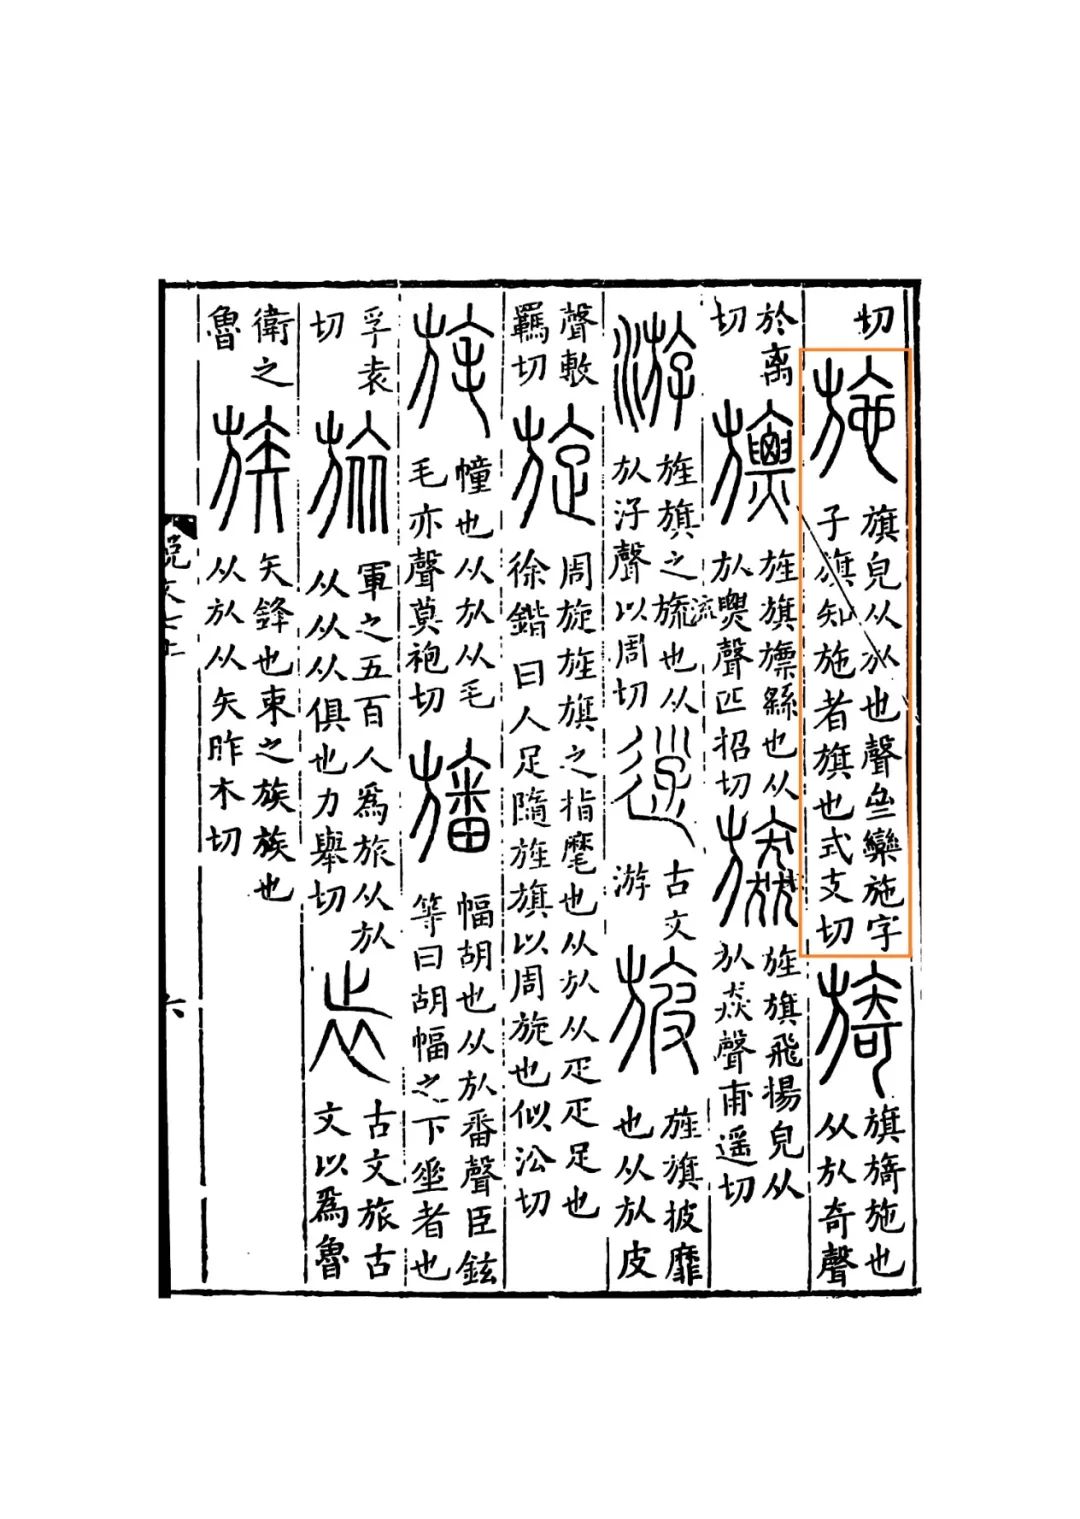 切施旗皃从㫃也聲亝欒施字子旗知施者旗也式支切旖旗旖施也从㫃奇聲
於离切旚旌旗旚繇也从㫃㶾聲匹招切旌旗飛揚皃从㫃猋聲甫遥切
游旌旗之旒也从㫃汓聲以周切古文游旇旌旗披靡也从㫃皮
流
聲敷羈切旋周旋旌旗之指麾也从㫃从疋疋足也徐鍇曰人足隨旌旗以周旋也似㳂切
旄幢也从㫃从毛毛亦聲莫袍切旛幅胡也从㫃番聲臣鉉等曰胡幅之下𠂹者也
孚袁切旅軍之五百人爲旅从㫃从从从俱也力舉切古文旅古文以爲魯
衛之魯族矢鋒也束之族族也从㫃从矢昨木切
說文七上
六